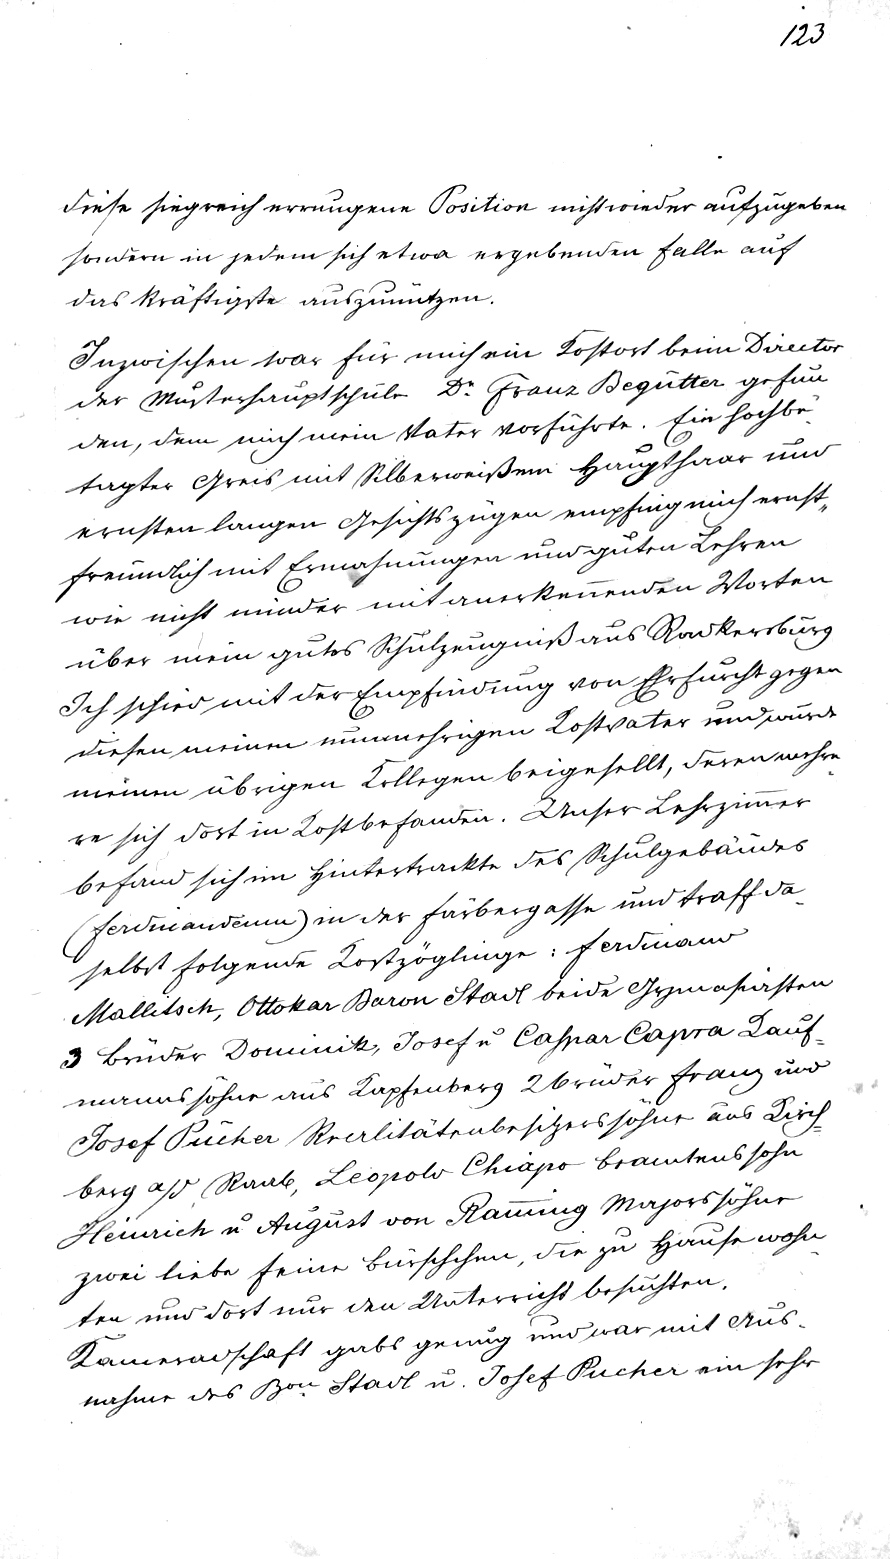 123
diese siegreich errungene Position nicht wieder aufzugeben
sondern in jedem sich etwa ergebenden Falle auf
das kräftigste auszunützen.
Inzwischen war für mich ein Kostort beim Director
der Musterhauptschule Dr. Franz Begutter gefun
den, dem mich mein Vater vorführte. Ein hochbe-
tagter Greis mit Silberweißem Haupthaar und
ernsten langen Gesichtszügen empfing mich ernst-
freundlich mit Ermahnungen und guten Lehren
wie nicht minder mit anerkennenden Worten
über mein gutes Schulzeugniß aus Radkersburg
Ich schied mit der Empfindung von Ehrfurcht gegen
diesen meinen nunmehrigen Kostvater und wurde
meinen übrigen Kollegen beigesellt, deren mehre-
re sich dort in Kost befanden. Unser Lehrzimmer
befand sich im Hintertrackte des Schulgebäudes
(Ferdinandeum) in der Färbergasse und traff da-
selbst folgende Kostzöglinge: Ferdinand
Mallitsch, Ottokar Baron Stadl beide Gymnasiasten
3 Brüder Dominik, Josef u Caspar Capra Kauf-
mannssöhne aus Kapfenberg 2 Brüder Franz und
Josef Pucher Realitätenbesitzerssöhne aus Kirch-
berg a/d Raab, Leopold Chiapo Beamtenssohn
Heinrich u August von Ramming Majorssöhne
zwei liebe feine Bürschchen, die zu Hause wohn-
ten und dort nur den Unterricht besuchten.
Kameradschaft gabs genug und war mit Aus-
nahme des Bon Stadl u. Josef Pucher ein sehr